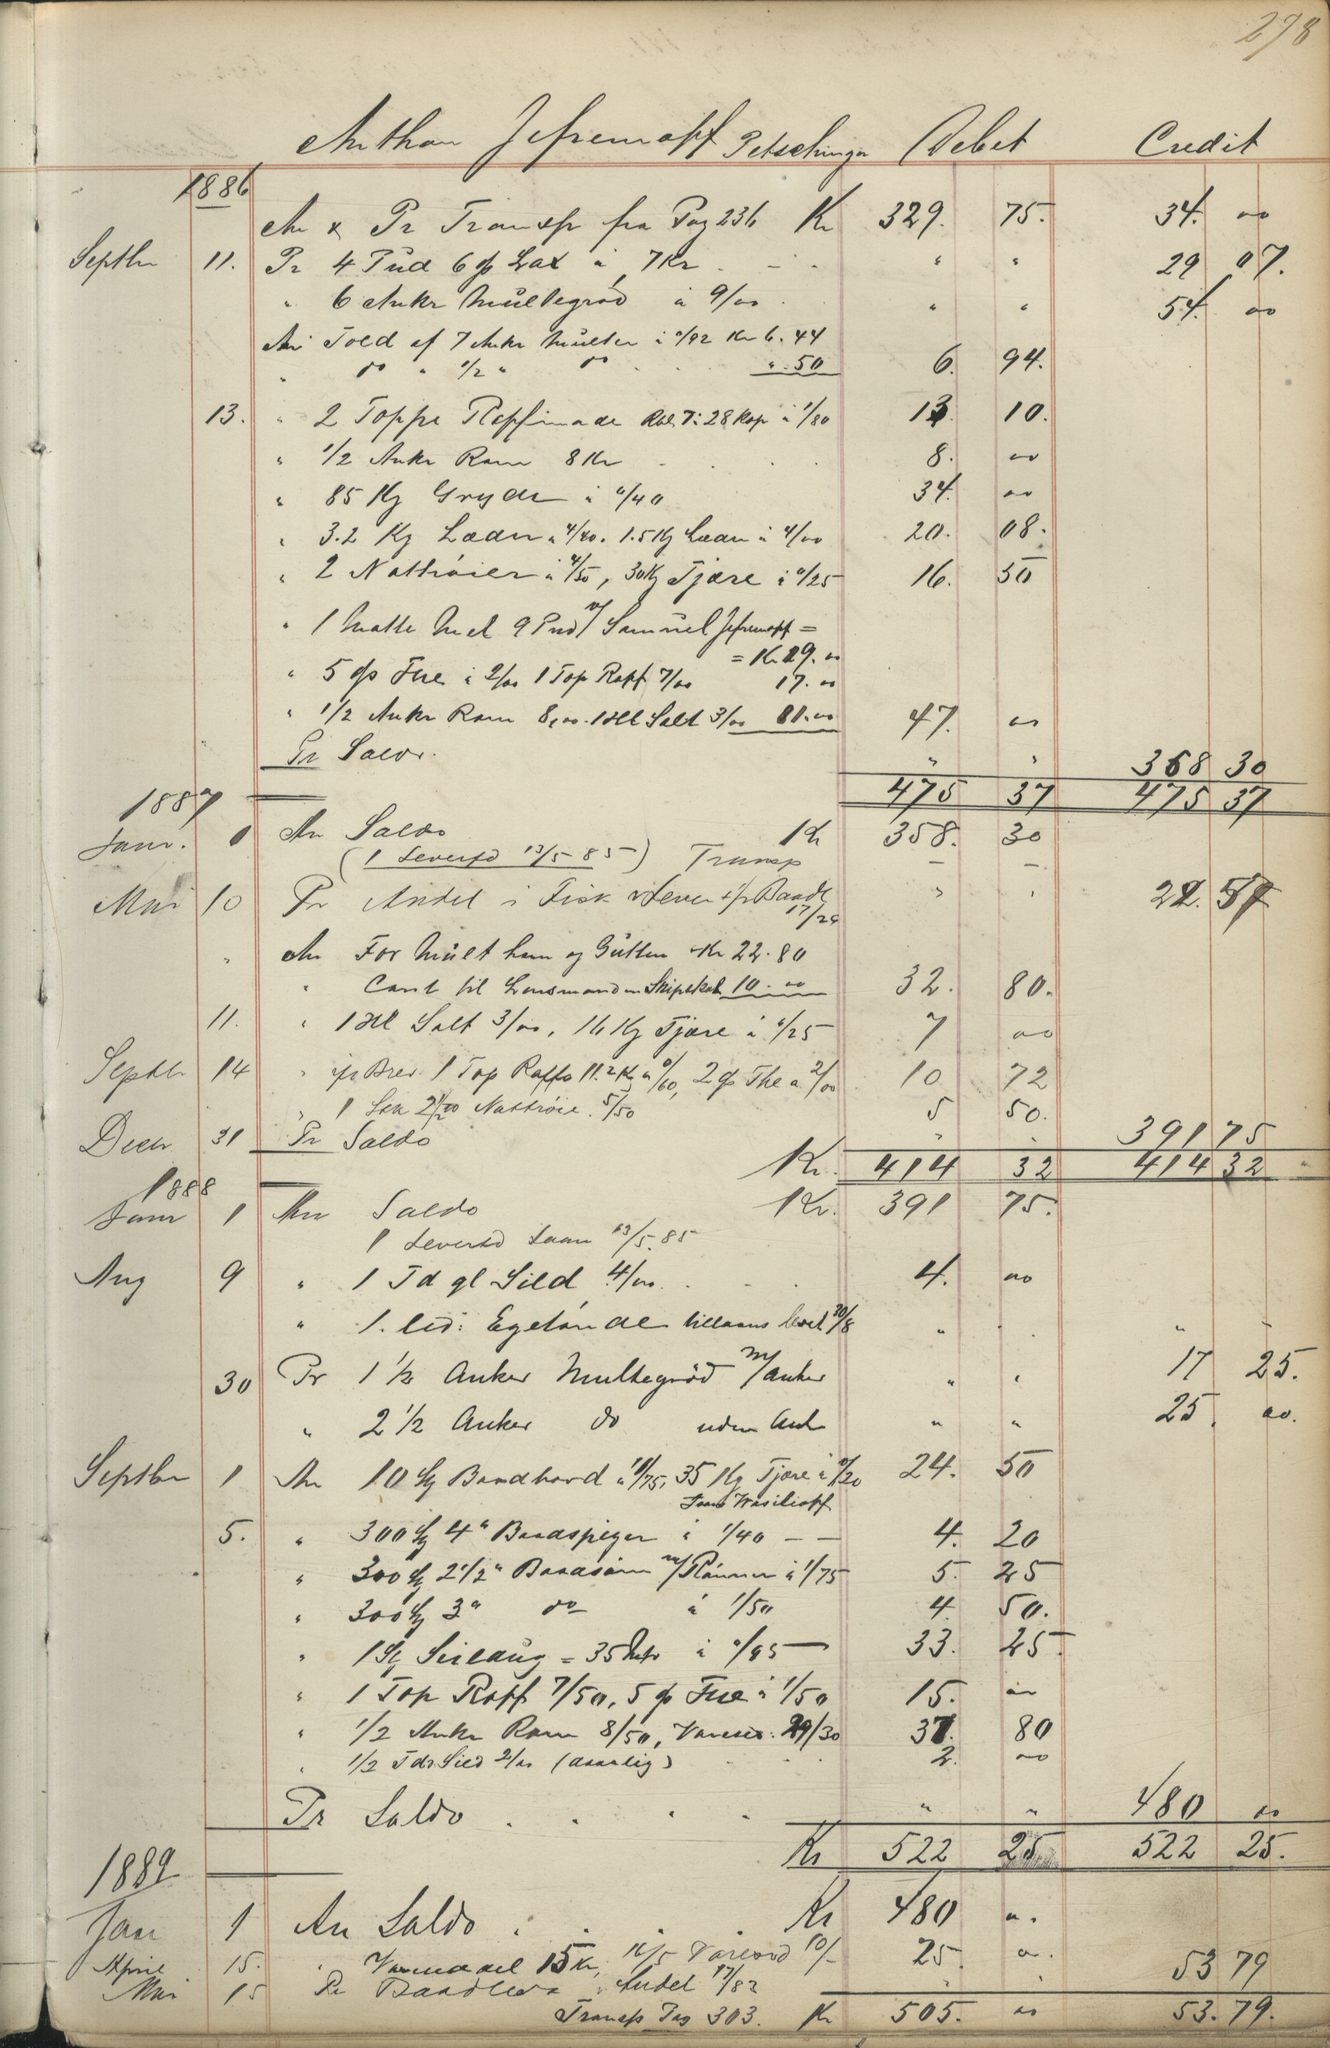 278
Anthon Jefremoff Petschinga Debet Credit
1886
An & Pr Transp fra Pag 236 Kr 329. 75. 34. 00
Septbr 11. Pr 4 Pud 6 ℔ Lax à 7 Kr . - . " " 29 07.
" 6 Ankr Multegrød à 9/00 . " " 54. 00
An Told af 7 Ankr Multer à "/92 Kr 6. 44
" do " 1/2 " do . . " . 50 6. 94.
13. " 2 Toppe Raffinade Rbl 7: 28 Kop à 1/80 13. 10.
" 1/2 Ankr Rom 8 Kr . . . . 8. 00
" 85 Kg Gryde à "/40 34. 00
" 3.2 Kg Læder à 4/40. 1.5 Kg Læder à 4/00 20. 08.
" 2 Nattrøier à 4/50, 30 Kg Tjære à "/25 16. 50
" 1 Matte Mel 9 Pud v/ Samuel Jefremoff =
= Kr 29. 00
" 5 ℔ The à 2/00 1 Top Raff 7/00 17. 00
" 1/2 Ankr Rom 8,00. 1 Hl Salt 3/00 81. 00 47. 00
Pr Saldo. " " 358 30
475 37 475 37
1887
Janr. 1 An Saldo Kr 358. 30
(1 Leverfd 13/5 85) Transp - -
Mai 10 Pr Andel i Fisk & Lever i/p Baade " " 22. 57
17/24
" An For Mült ham og Gutten Kr 22. 80
" Cont til Lensmanden Skipskat 10. 00 32. 80.
11. " 1 Hl Salt 3/00, 16 Kg Tjære à "/25 7 00
Septbr 14 " i/p Brev 1 Top Raffn 11.2 Kg à "/60, 2 ℔ The à 2/00 10 72
" 1 Nattrøie 5/50 5 50.
Decbr 31 Pr Saldo " . 391 75
Kr. 414 32 414 32
1888
Janr 1 An Saldo Kr. 391 75.
1 Leverfd Laan 13/5. 85
Aug 9 " 1 Td gl Sild 4/00. . . 4. 00
" 1. Egetønde tillaans 30/8 " . " "
30 Pr 1 1/2 Anker Multegrød m/Anker " " 17 25.
" 2 1/2 Anker do uden Ank " " 25. 00.
Septbr 1 An 10 Baadbord à 1"/75, 35 Kg Tjære à "/20 24. 50
Ivan Wasilioff
5. " 300 4" Baadspiger à 1/40 - - 4. 20
" 300 2 1/2" Baadsøm m/Rønner à 1/75 5. 25
" 300 3" do à 1/50 4. 50.
" 1 Seildug = 35 Mtr à "/95 - 33. 25
" 1 Top Raff 7/50, 5 ℔ The à 1/50 15. 00
" 1/2 Ankr Rom 8/50, Varer 29/30 37. 80
" 1/2 Tdr Sild 2/00 (daarlig) . . 2. 00
Pr Saldo . . . . " " 480 00
Kr 522 25 522 25.
1889
Jan 1 An Saldo . . . . Kr 480 00
April 15. " Kr, 10/- 25. 00.
Mai 15 Pr Baadlev Andel 17/82 . . 53 79
Transp Pag 303. Kr 505. 00 53. 79.